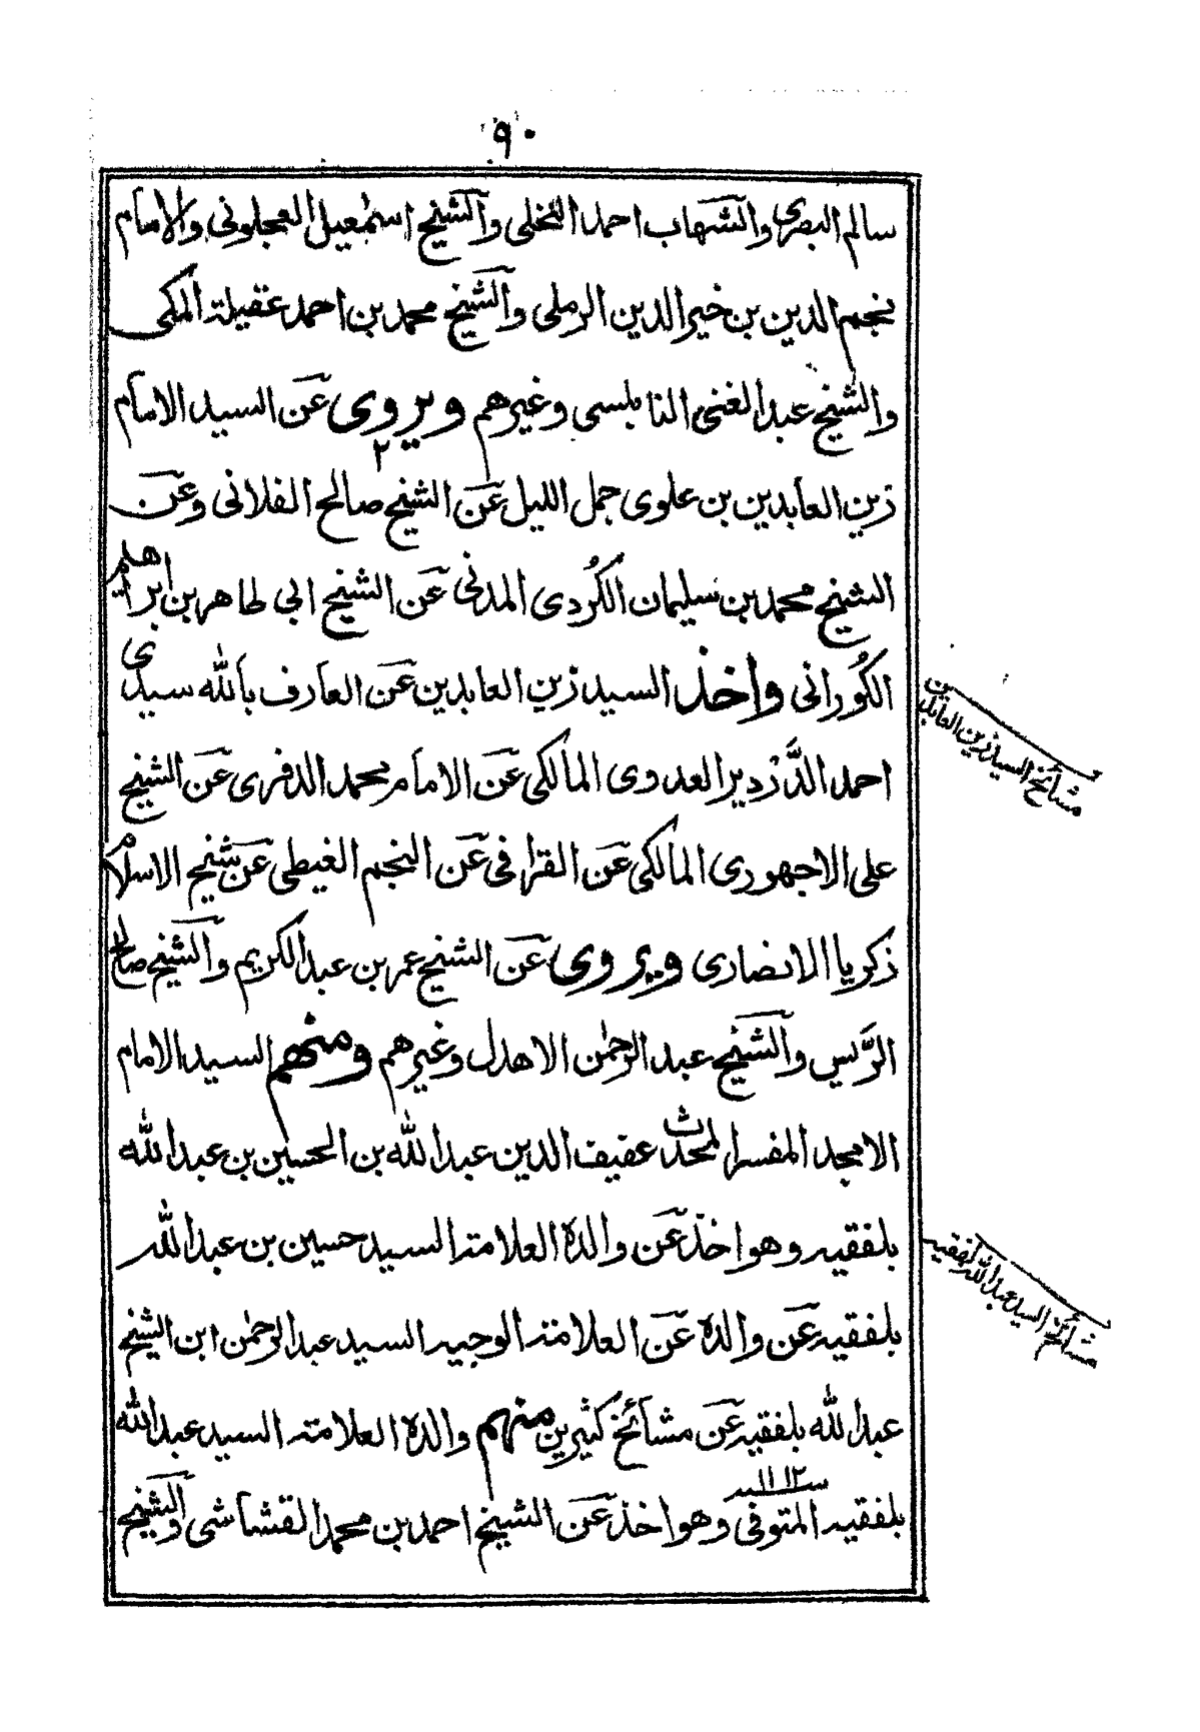 ٩٠
سالم البصرى والشهاب احمد النخلى والشيخ اسمٰعيل العجلونى والامام
نجم الدين بن خير الدين الرملى والشيخ محمد بن احمد عقيلة المكى
والشيخ عبد الغنى النابلسى وغيرهم ويروى عَن السيد الامام
٢
زين العابدين بن علوى جمل الليل عَن الشيخ صالح الفلانى وعَن
الشيخ محمد بن سليمان الكُردى المدنى عَن الشيخ ابى طاهر بن ابراهيم
الكُورانى واخذ السيد زين العابدين عَن العارف بالله سيدى
احمد الدَّرْدير العدوى المالكى عَن الامام محمد الدفرى عَن الشيخ
على الاجهورى المالكى عَن القرافى عَن النجم الغيطى عَن شيخ الاسلام
زكريا الانصارى ويروى عَن الشيخ عمر بن عبد الكريم والشيخ صالح
الرَّيس والشيخ عبد الرحمٰن الاهدل وغيرهم ومنهم السيد الامام
الامجد المفسر المحدث عفيف الدين عبد الله بن الحسين بن عبد الله
بلفقيه وهو اخذ عَن والده العلامة السيد حسين بن عبد الله
بلفقيه عَن والده عَن العلامة الوجيه السيد عبد الرحمٰن ابن الشيخ
عبد الله بلفقيه عَن مشائخ كثيرين منهم والده العلامة السيد عبد الله
بلفقيه المتوفى سنة ١١١٢ وهو اخذ عَن الشيخ احمد بن محمد القشاشى والشيخ
مشائخ السيد زين العابدين
مشائخ السيد عبد الله بلفقيه